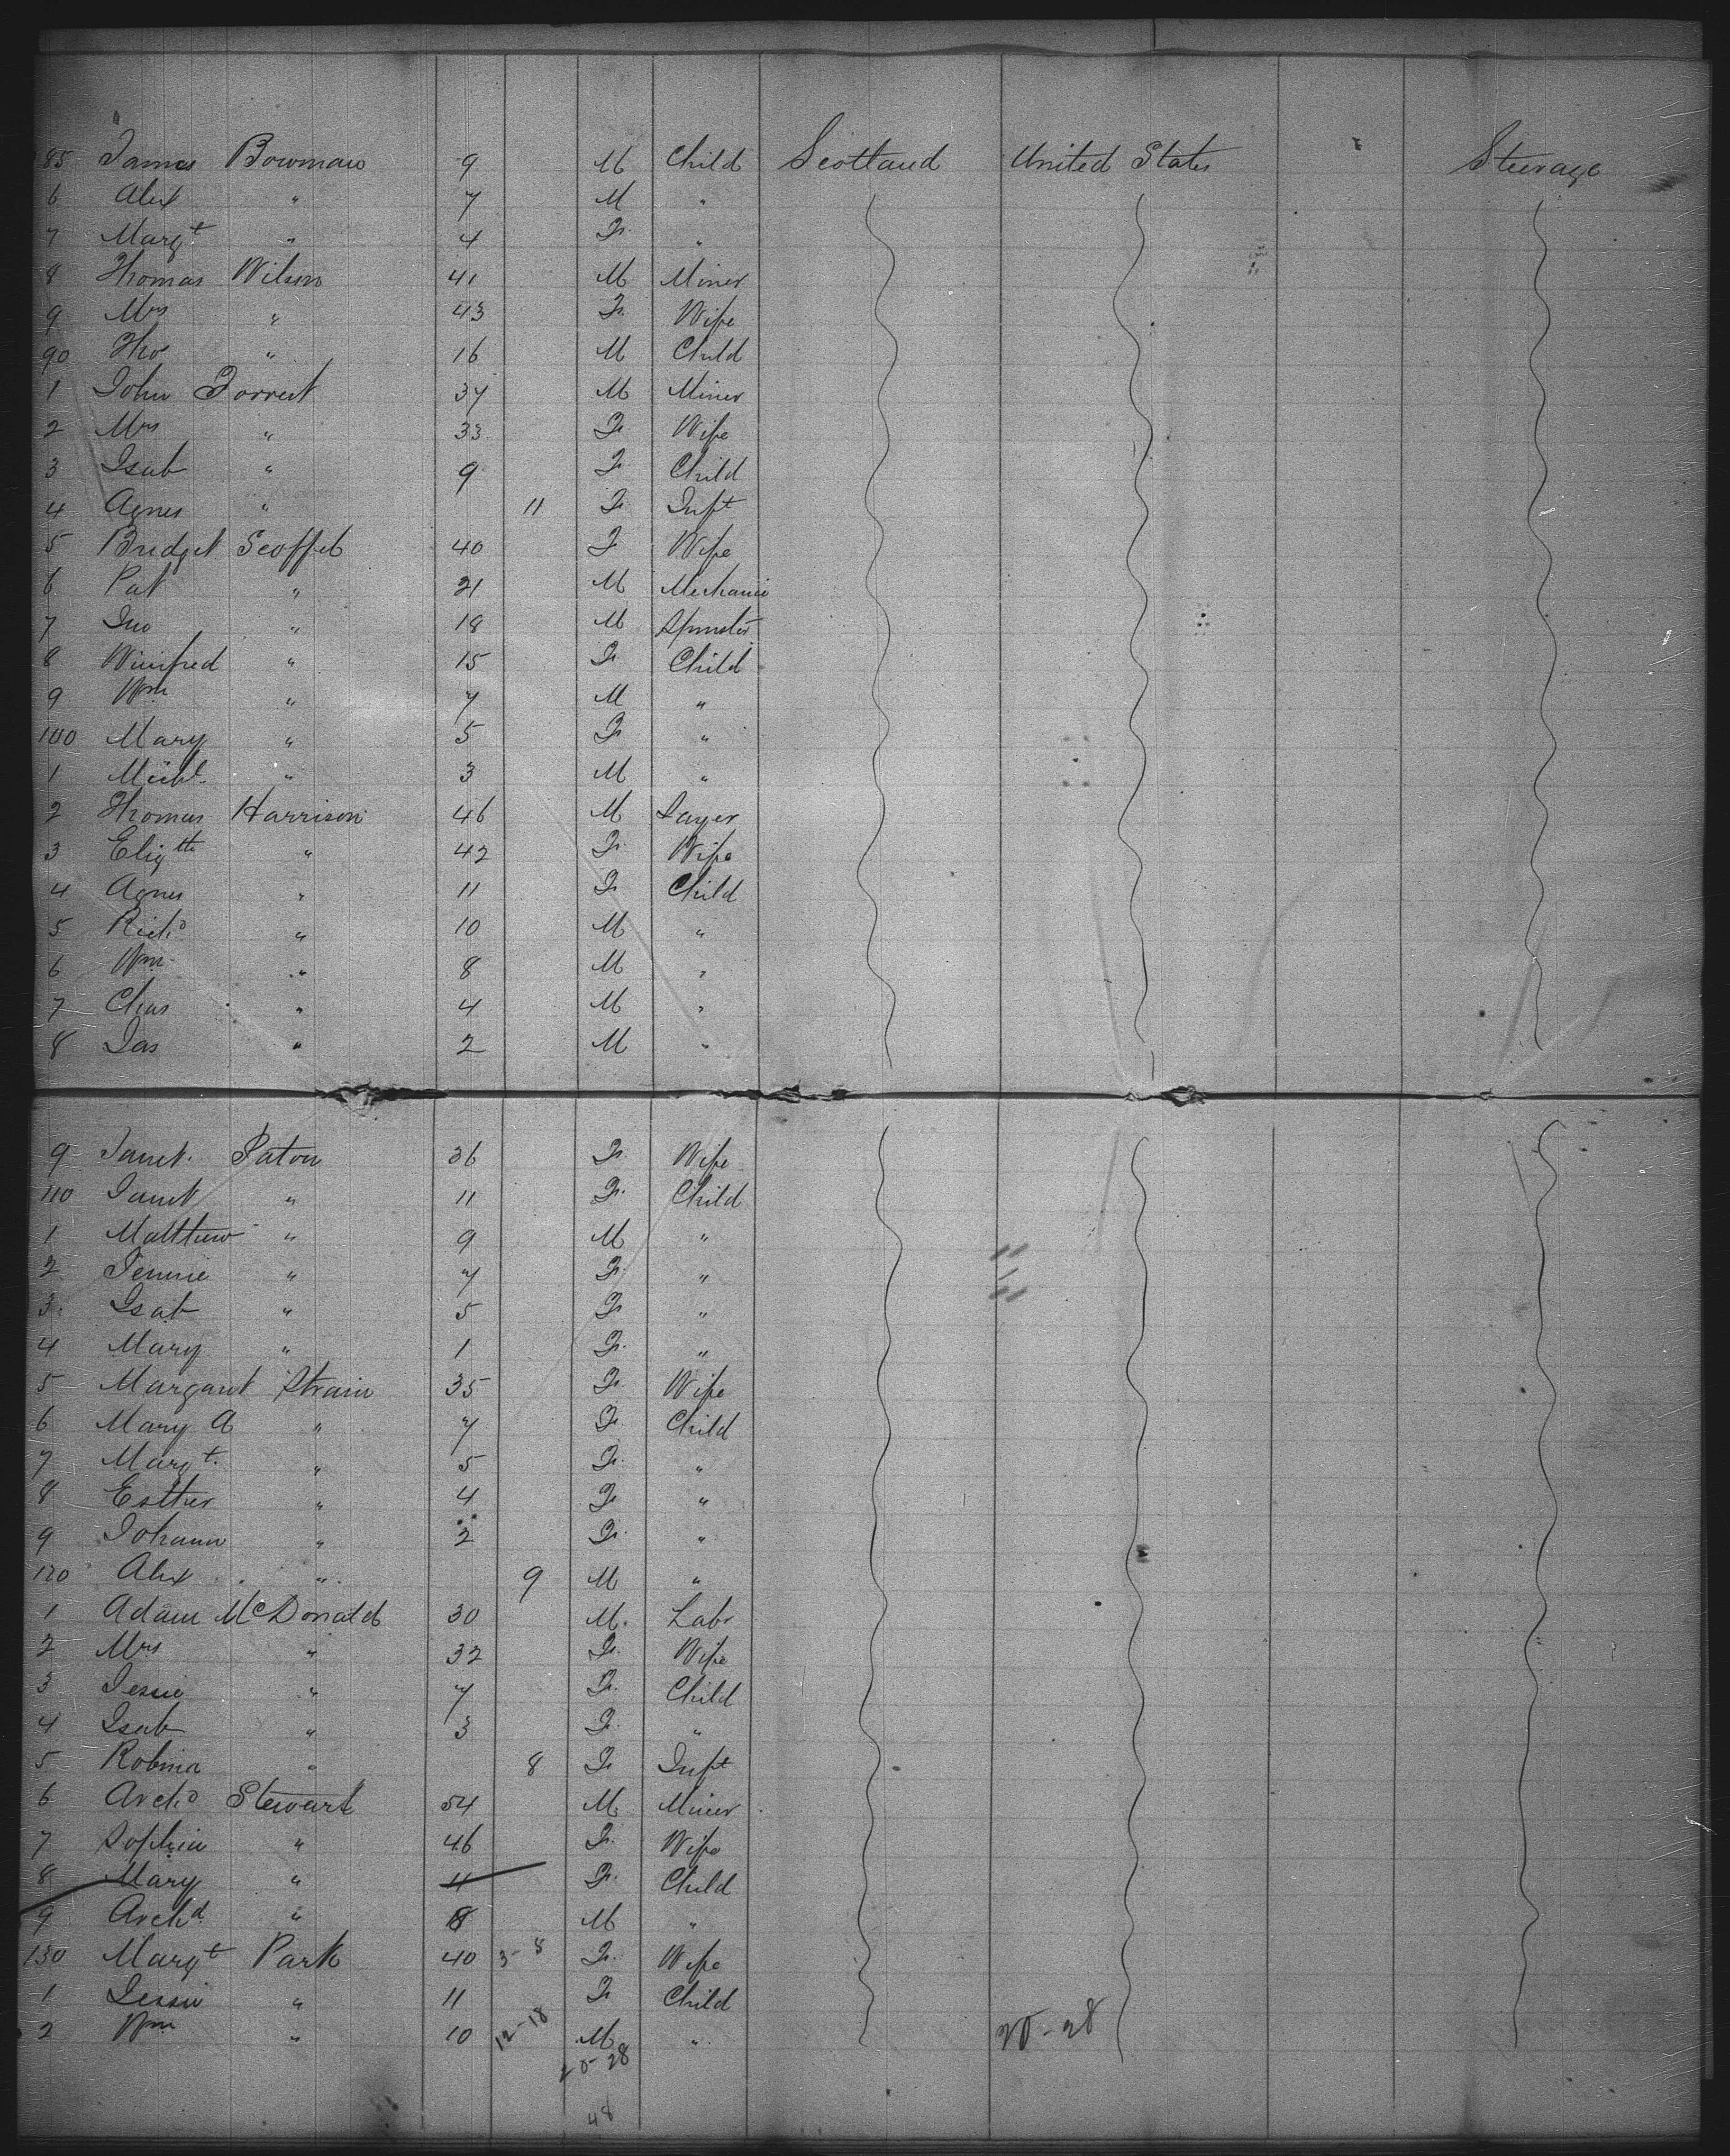 85 James Bowman 9 M Child Scotland United States Steerage
6 Alex " 7 M "
7 Margt " 4 F. "
8 Thomas Wilson 41 M Miner
9 Mrs " 43 F. Wife
90 Thos " 16 M Child
1 John Forrest 37 M Miner
2 Mrs " 33 F. Wife
3 Isab " 9 F. Child
4 Agnes " 11 F. Inft
5 Bridget 40 F Wife
6 Pat " 21 M Mechanic
7 Jno " 18 M Spinster
8 Winifred " 15 F Child
9 Wm " 7 M "
100 Mary " 5 F "
1 Michl " 3 M "
2 Thomas Harrison 46 M
3 Elizth " 42 F Wife
4 Agnes " 11 F Child
5 Richd " 10 M "
6 Wm " 8 M "
7 Chas " 4 M "
8 Jas " 2 M "
9 Janet Paton 36 F. Wife
110 Janet " 11 F. Child
1 Matthew " 9 M "
2 Jennie " 7 F. "
3 Isab " 5 F "
4 Mary " 1 F. "
5 Margaret Strain 35 F. Wife
6 Mary A " 7 F. Child
7 Margt. " 5 F. "
8 Esther " 4 F "
9 Johann " 2 F. "
120 Alex " 9 M "
1 Adam McDonald 30 M. Labr
2 Mrs " 32 F. Wife
3 Jessie " 7 F. Child
4 Isab " 3 F. "
5 Robina " 8 F Inft
6 Archd Stewart 54 M Miner
7 Sophia " 46 F. Wife
8 Mary " 11 F. Child
9 Archd " 8 M "
130 Margt Park 40 3-8 F. Wife
1 Jessie " 11 F Child
2 Wm " 10 12-18 M "
20-28 20-28
48